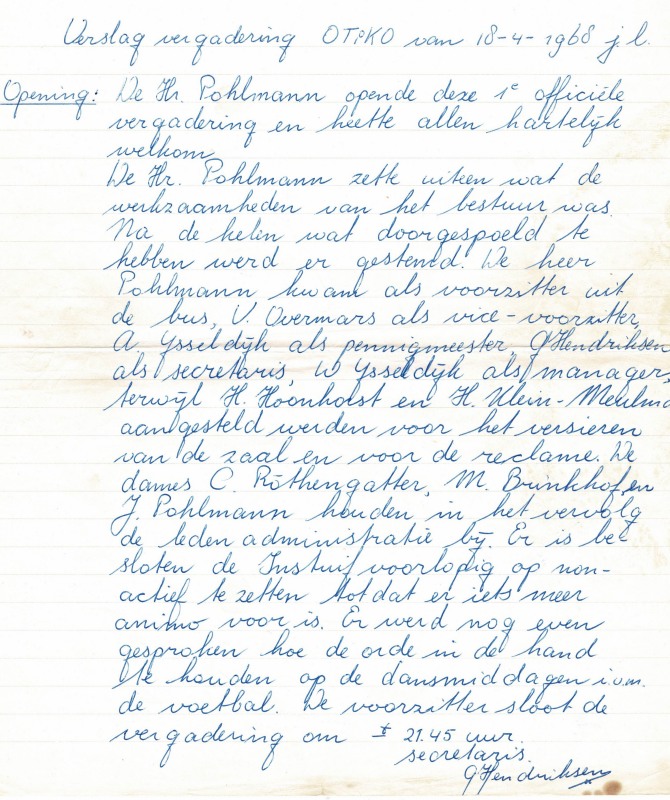 Verslag vergadering OTIKO van 18-4-1968 j.l.
Opening: De Hr. Pohlmann opende deze 1e officiële
vergadering en heette allen hartelijk
welkom
De Hr. Pohlmann zette uiteen wat de
werkzaamheden van het bestuur was.
Na de kelen wat doorgespoeld te
hebben werd er gestemd. De heer
Pohlmann kwam als voorzitter uit
de bus, V. Overmars als vice-voorzitter,
A. Ysseldijk als pennigmeester, G Hendriksen
als secretaris, W Ysseldijk als manager,
terwijl H. Hoonhorst en H. Klein-Meulma
aangesteld werden voor het versieren
van de zaal en voor de reclame. De
dames C. Röthengatter, M. Brinkhof, en
J. Pohlmann houden in het vervolg
de leden administratie bij. Er is be-
sloten de Instuif voorlopig op non-
actief te zetten totdat er iets meer
animo voor is. Er werd nog even
gesproken hoe de orde in de hand
te houden op de dansmiddagen i.v.m.
de voetbal. De voorzitter sloot de
vergadering om ± 21.45 uur.
secretaris.
G Hendriksen